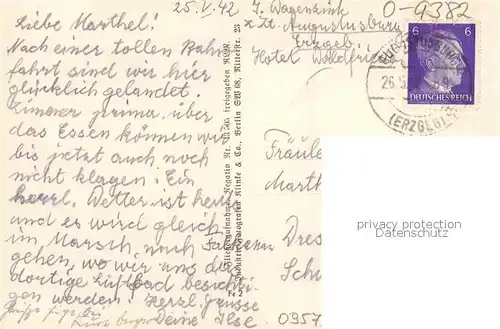 25.V.42
Liebe Marthel!
Nach einer tollen Bahn-
fahrt sind wir hier
glücklich gelandet.
Zimmer prima, über
das Essen können wir
bis jetzt auch noch
nicht klagen! Ein
herrl. Wetter ist heut
und es wird gleich
im Marsch, nach
gehen, wo wir uns das
dortige Luftbad besichti
gen werden! Herzl. Grüsse
Deine Ilse
J. Wagenknecht
z. Zt. Augustusburg
Erzgeb.
Hotel Waldfrieden
0-9382
6
DEUTSCHES REICH
26.5.
(ERZGEB)
Fräulein
Marth
Dres
Schu
0957
privacy protection
Datenschutz
Fliegeraufnahme Negativ Nr. freigegeben RLM.
Industrie-Fotografen Klinke & Co., Berlin SW 68, Ritterstr. 23
Fe 2